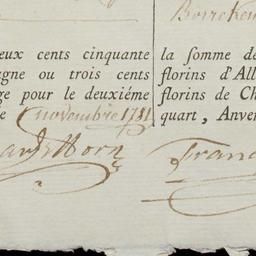 Borreken
eux cents cinquante la somme de
agne ou trois cents florins d'All
ge pour le deuxiéme florins de Ch
e novembre 1781 quart, Anver
Franc